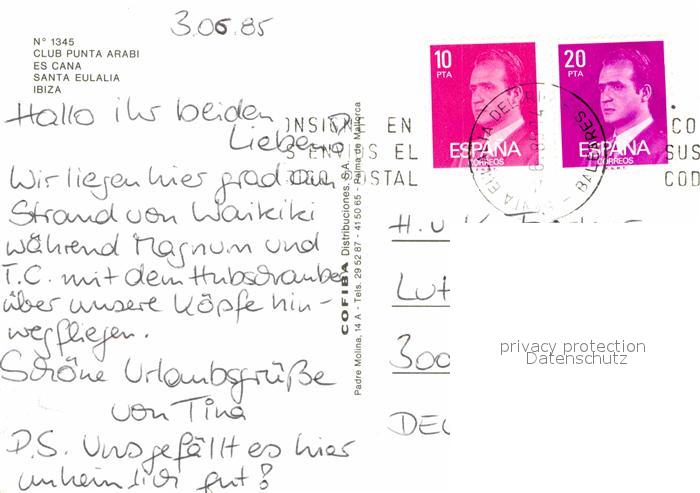 3.06.85
N° 1345
CLUB PUNTA ARABI
ES CANA
SANTA EULALIA
IBIZA
Hallo ihr beiden
Lieben!
Wir liegen hier grad am
Strand von Waikiki
während Magnum und
T.C. mit dem Hubschrauber
über unsere Köpfe hin-
wegfliegen.
Schöne Urlaubsgrüße
von Tina
P.S. Uns gefällt es hier
unheimlich gut!
COFIBA Distribuciones, S.A.
Padre Molina, 14 A - Tels. 29 52 87 - 41 50 65 - Palma de Mallorca
10
PTA
ESPAÑA
CORREOS
20
PTA
ESPAÑA
CORREOS
EN CO
EL SUS
POSTAL COD
BALEARES
H. u. K.
Lut
300
DEU
privacy protection
Datenschutz